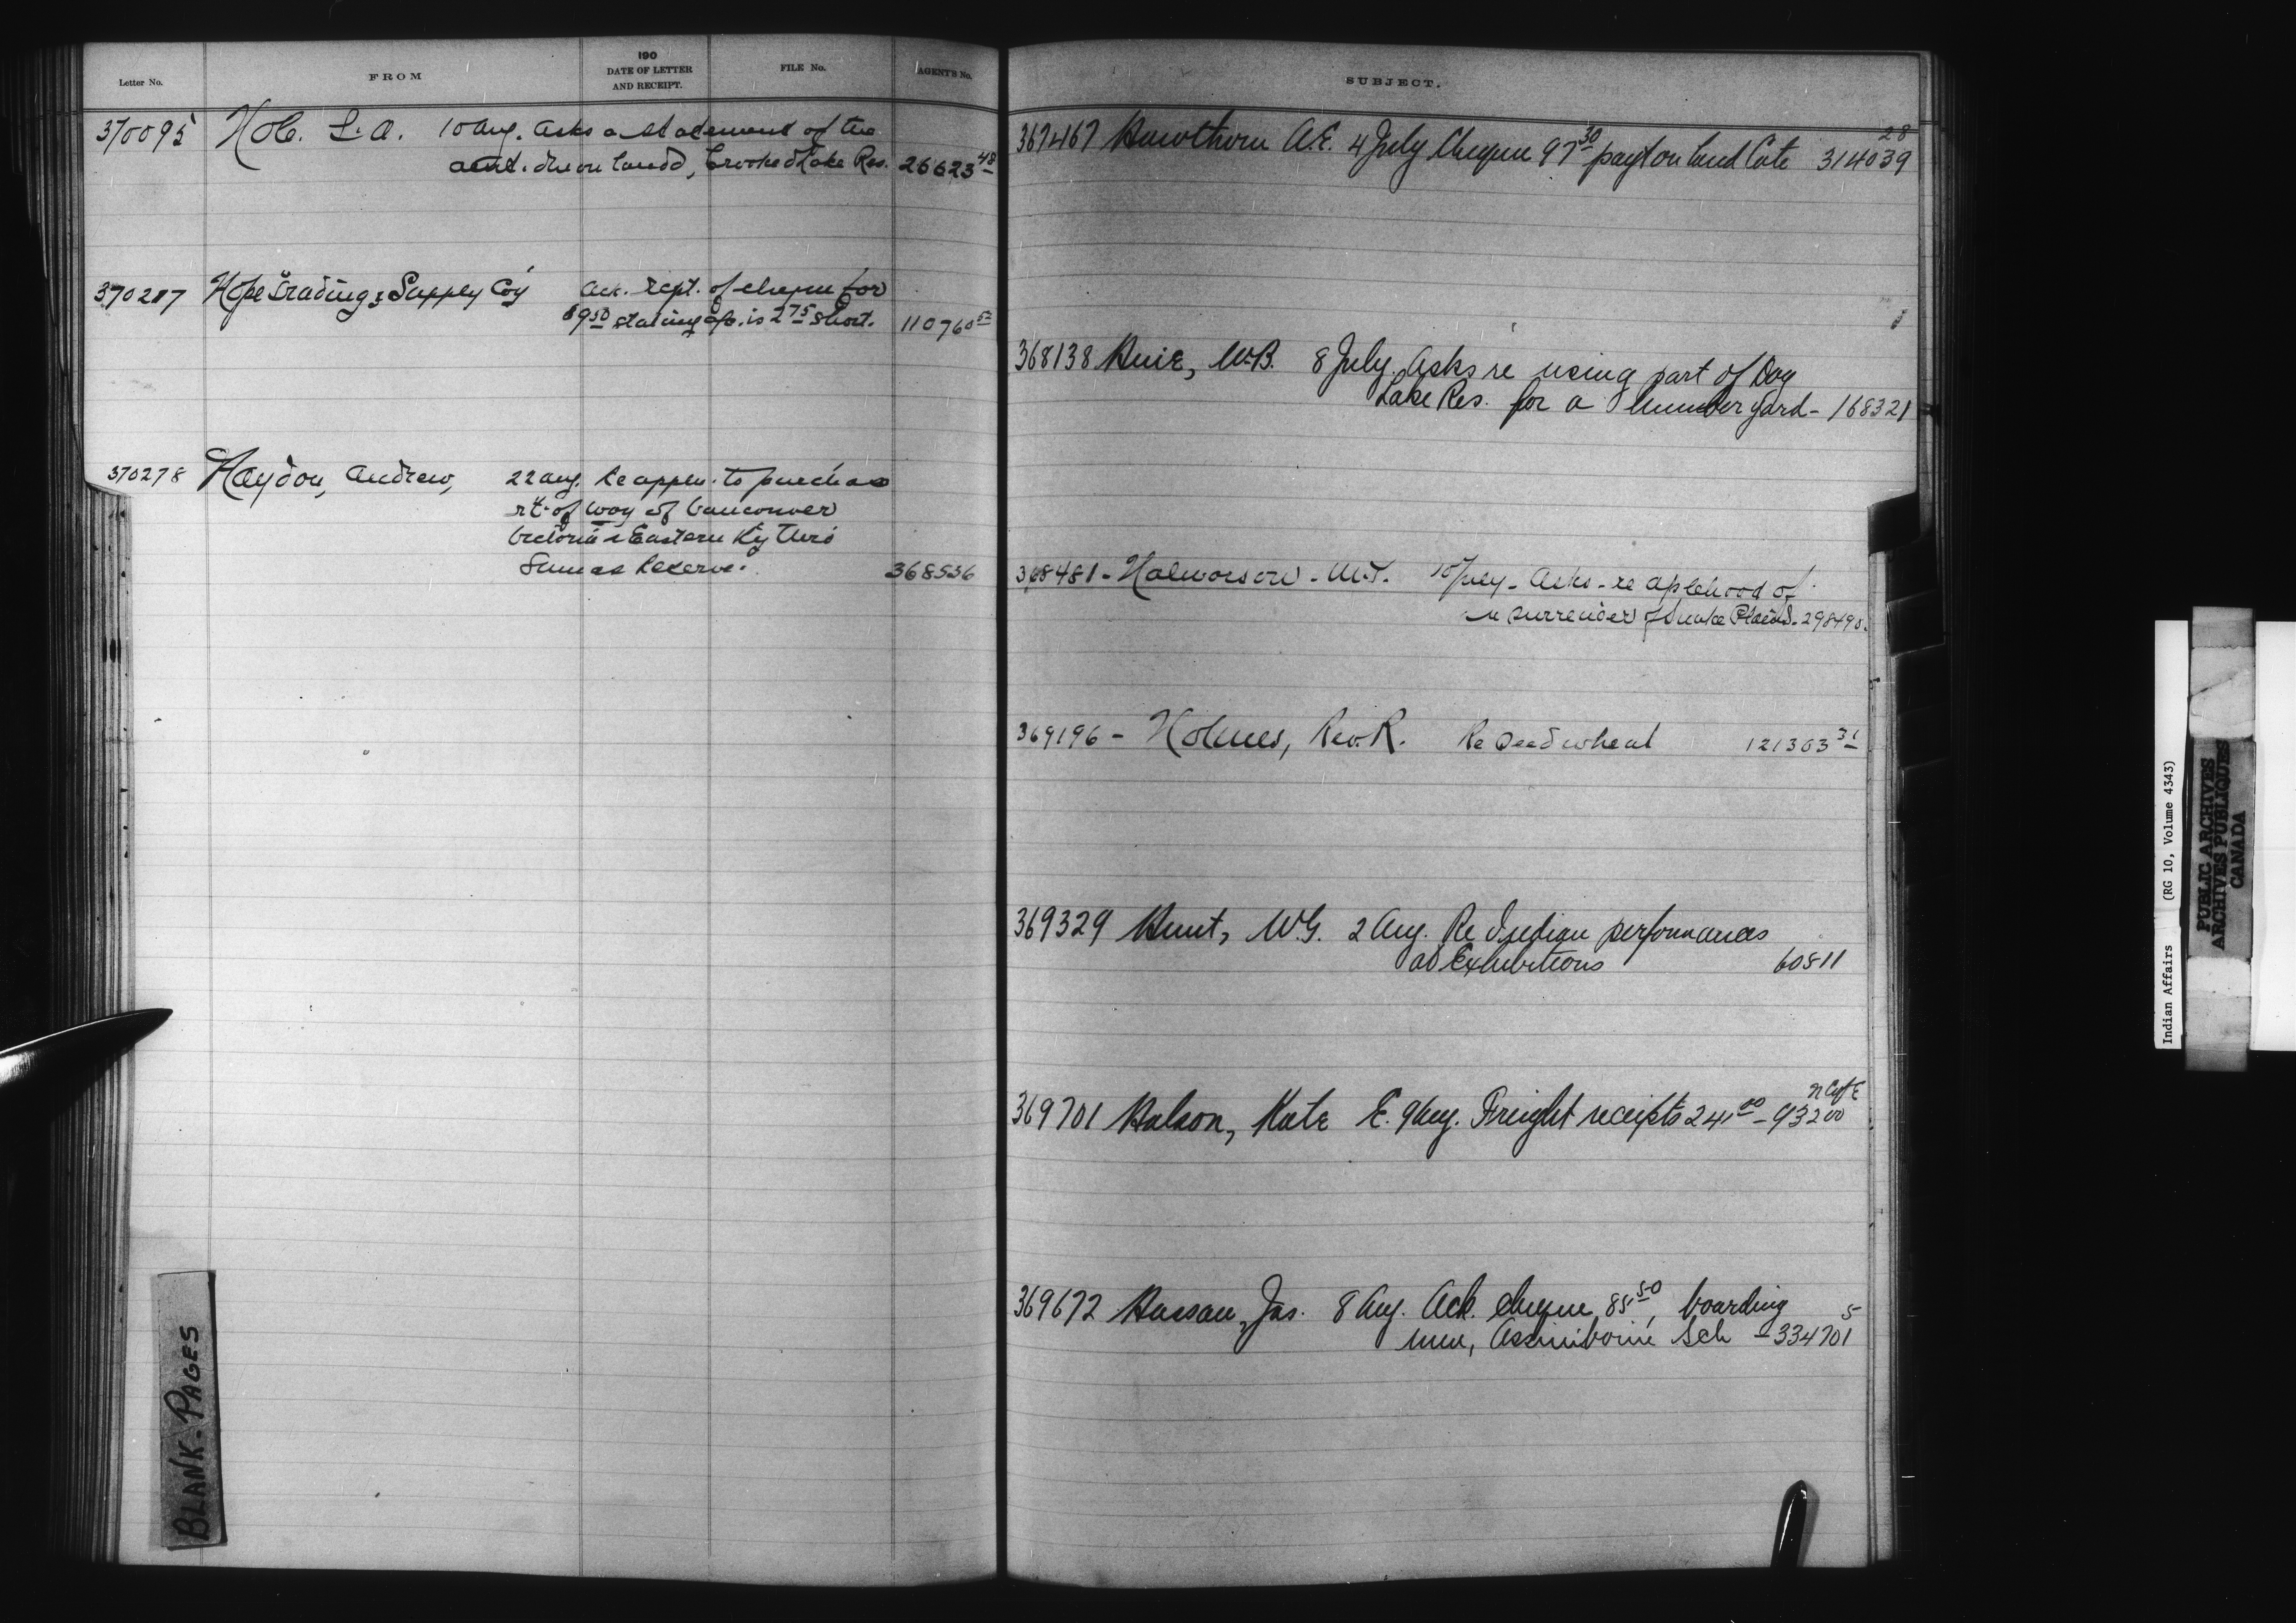 Letter No.
FROM
190
DATE OF LETTER
AND RECEIPT.
FILE No.
AGENT'S No.
370095 L. A. 10 Aug. Asks a statement of the
amt. due on land, Crooked Lake Res. 26623 48
370287 Hope Trading & Supply Coy Ack. rept. of cheque for
89 50 stating is 2 75 short. 110760
370278 Haydon, Andrew, 22 Aug. Re appln. to purchase
rt. of way of Vancouver
Victoria & Eastern Ry thro
Sumas Reserve. 368536
SUBJECT.
28
367467 Hawthorn A.E. 4 July Cheque 97 30 payt on land Cote 314039
368138 Huie, W.B. 8 July. Asks re using part of Dog
Lake Res. for a lumber yard - 168321
368481 - Halvorson - M.T. 10 July - Asks - re aplehood of
surrender of Snake Plain - 298490.
369196 - Holmes, Rev. R. Re Seed wheat 121363 31
369329 Hunt, W.G. 2 Aug. Re Indian performances
at Exhibitions 60511
369701 Halson, Kate E. 9 Aug. Freight receipts 24 00 - 93200
369672 Hassan, Jas. 8 Aug. Ack. cheque 85 50, boarding 5
men, Assiniboine Sch - 334701
BLANK-PAGES
Indian Affairs (RG 10, Volume 4343)
PUBLIC ARCHIVES
ARCHIVES PUBLIQUES
CANADA